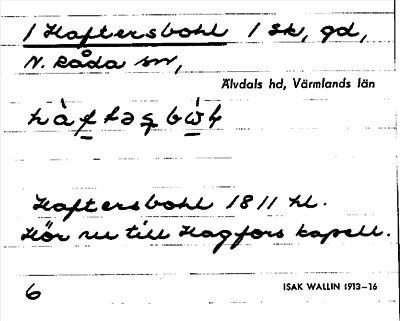 1 Haftersbohl 1 sk, gd,
N. Råda sn,
Älvdals hd, Värmlands län
Haftersbohl 1811 hl.
Hör nu till Hagfors kapell.
6 ISAK WALLIN 1913–16